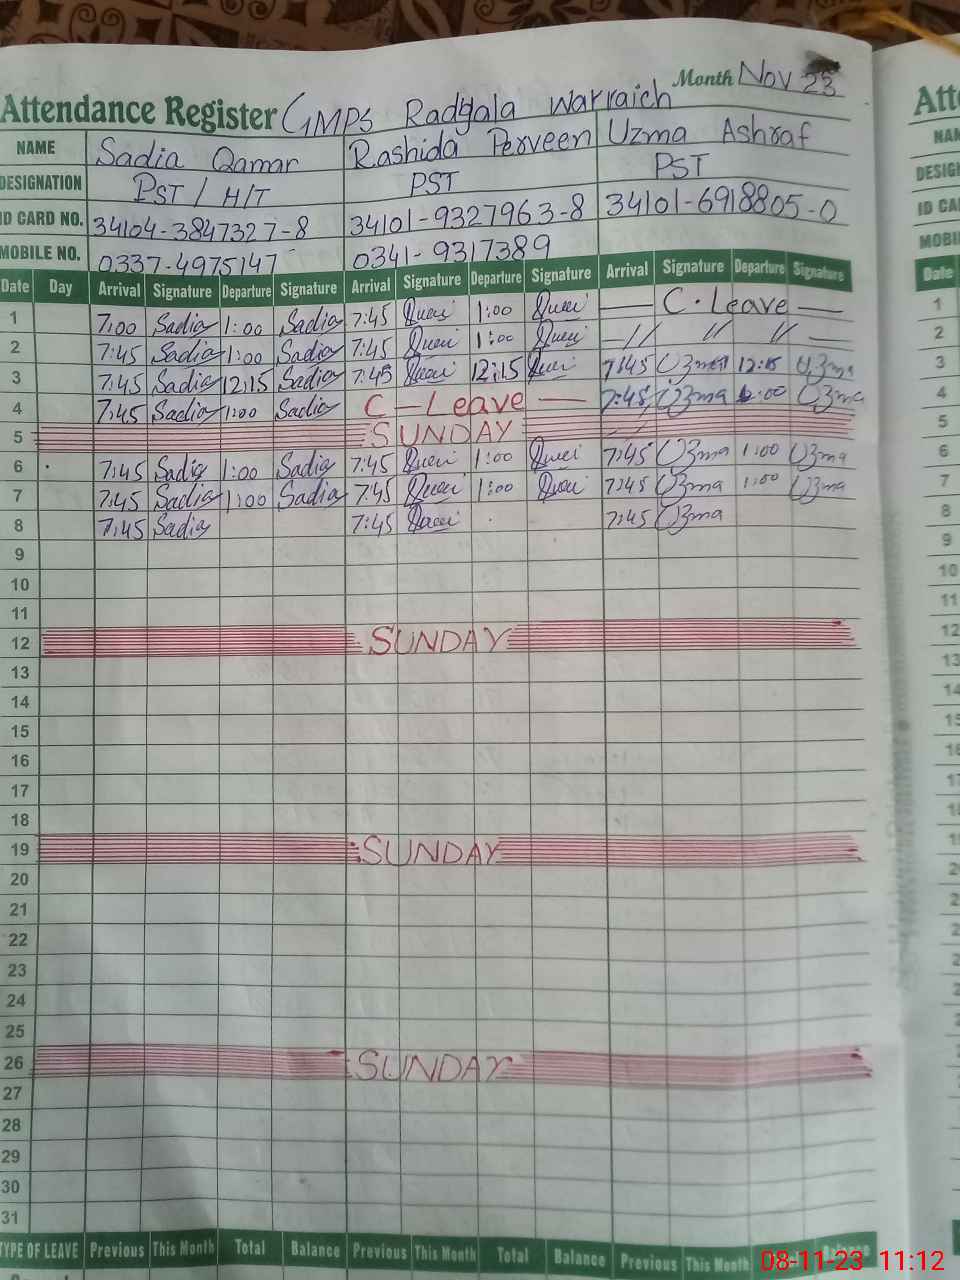 Month Nov 23
Attendance Register GMPS Radyala Warraich
NAME Sadia Qamar Rashida Perveen Uzma Ashraf
DESIGNATION PST / H/T PST PST
ID CARD NO. 34104-3847327-8 34101-9327963-8 34101-6918805-0
MOBILE NO. 0337-4975147 0341-9317389
Date Day Arrival Signature Departure Signature Arrival Signature Departure Signature Arrival Signature Departure Signature
1 7:00 Sadia 1:00 Sadia 7:45 1:00 — C. Leave —
2 7:45 Sadia 1:00 Sadia 7:45 1:00 — // // // —
3 7:45 Sadia 12:15 Sadia 7:45 12:15 7:45 Uzma 12:15 Uzma
4 7:45 Sadia 1:00 Sadia C — Leave — 7:45 Uzma :00 Uzma
5 SUNDAY
6 7:45 Sadia 1:00 Sadia 7:45 1:00 7:45 Uzma 1:00 Uzma
7 7:45 Sadia 1:00 Sadia 7:45 1:00 7:45 Uzma 1:00 Uzma
8 7:45 Sadia 7:45 7:45 Uzma
9
10
11
12 SUNDAY
13
14
15
16
17
18
19 SUNDAY
20
21
22
23
24
25
26 SUNDAY
27
28
29
30
31
TYPE OF LEAVE Previous This Month Total Balance Previous This Month Total Balance Previous This Month
08-11-23 11:12
Att
NAM
DESIGN
ID CA
MOBI
Date
1
2
3
4
5
6
7
8
9
10
11
12
13
14